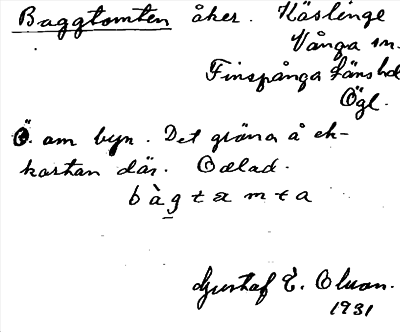 Baggtomten åker. Häslinge
Vånga sn.
Finspånga länshd
Ögl.
Ö. om byn. Det gräna å ek-
kastan där. Odlad.
bàgtamta
Gustaf E. Olson.
1931